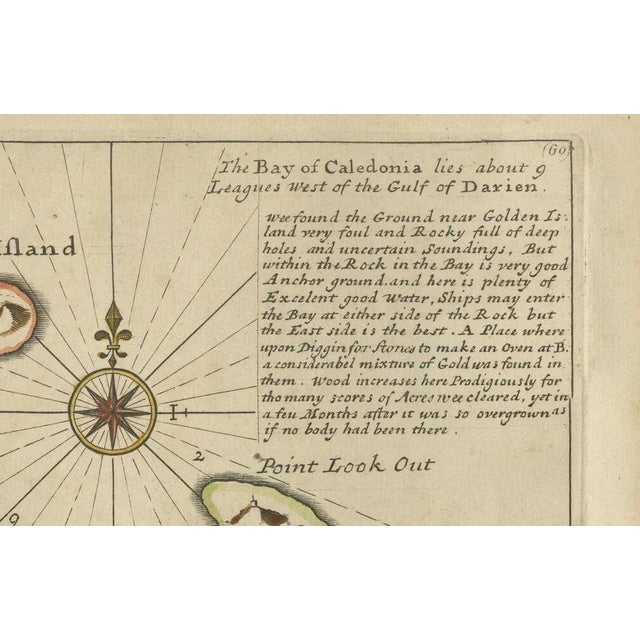 (60)
The Bay of Caledonia lies about 9
Leagues West of the Gulf of Darien.
wee found the Ground near Golden Is-
land very foul and Rocky full of deep
holes and uncertain Soundings, But
within the Rock in the Bay is very good
Anchor ground. and here is plenty of
Excelent good Water, Ships may enter
the Bay at either side of the Rock but
the East side is the best. A Place where
upon Diggin for Stones to make an Oven at B.
a considerabel mixture of Gold was found in
them. Wood increases here Prodigiously for
tho many scores of Acres wee cleared, yet in
a feu Months after it was so overgrown as
if no body had been there.
Island
I+
2
Point Look Out
9